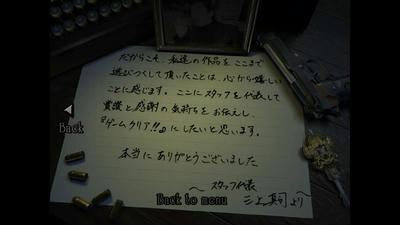 だからこそ、私達の作品をここまで
遊びつくして頂いたことは、心から嬉しい
ことに感じます。ここにスタッフを代表して
賞讃と感謝の気持ちをお伝えし、
『ゲームクリア!!』にしたいと思います。
本当にありがとうございました
〜スタッフ代表
三上真司より〜
Back
Back to menu